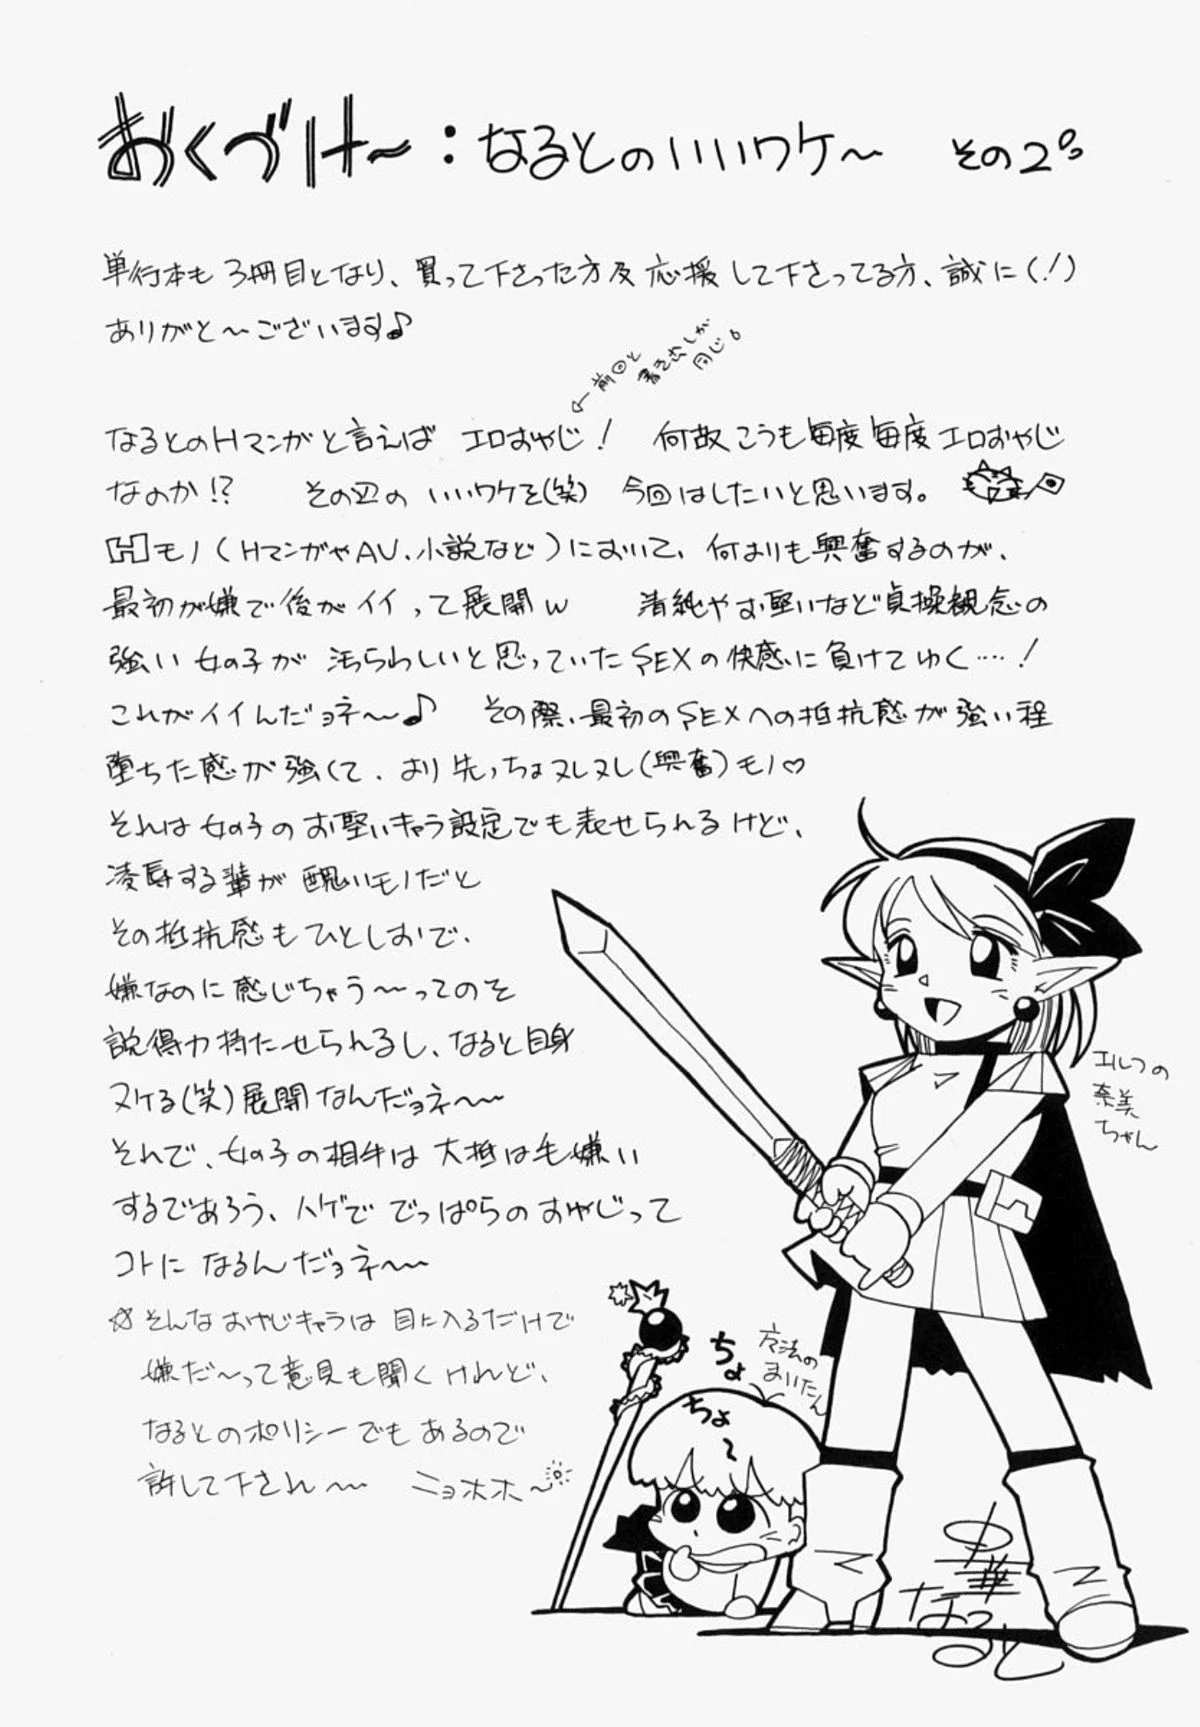 おくづけ〜：なるとのいいワケ〜 その2。
単行本も3冊目となり、買って下さった方及応援して下さってる方、誠に(！)
ありがと〜ございます♪
←前回と
書き出しが
同じ。
なるとのHマンガと言えば エロおやじ！ 何故こうも毎度毎度エロおやじ
なのか!? その辺の いいワケを(笑) 今回はしたいと思います。
Hモノ(HマンガやAV、小説など)において、何よりも興奮するのが、
最初が嫌で後がイイって展開w 清純やお堅いなど貞操観念の
強い女の子が 汚らわしいと思っていたSEXの快感に負けてゆく…！
これがイイんだョネ〜♪ その際、最初のSEXへの抵抗感が強い程
堕ちた感が強くて、より先っちょヌレヌレ(興奮)モノ♡
それは女の子のお堅いキャラ設定でも表せられるけど、
凌辱する輩が醜いモノだと
その抵抗感もひとしおで、
嫌なのに感じちゃう〜ってのを
説得力持たせられるし、なると自身
ヌケる(笑)展開なんだョネ〜
それで、女の子の相手は大抵は毛嫌い
するであろう、ハゲで でっぱらのおやじって
コトに なるんだョネ〜
☆そんなおやじキャラは 目に入るだけで
嫌だ〜って意見も聞くけれど、
なるとのポリシーでもあるので
許して下され〜 ニョホホ〜
エルフの
奈美
ちゃん
ちょ
ちょ〜
まいたん
なると